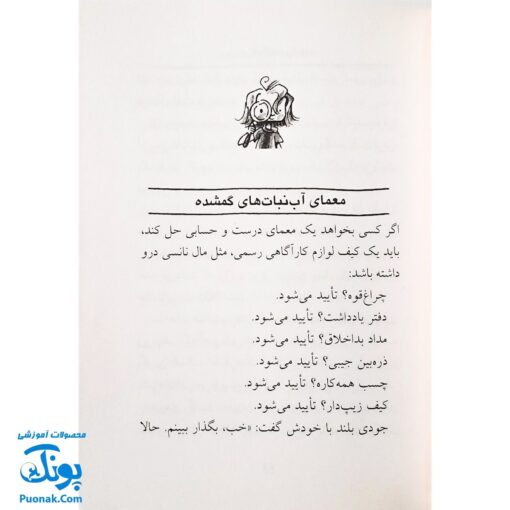 معمای آب‌نبات‌های گمشده
اگر کسی بخواهد یک معمای درست و حسابی حل کند،
باید یک کیف لوازم کارآگاهی رسمی، مثل مال نانسی درو
داشته باشد:
چراغ‌قوه؟ تأیید می‌شود.
دفتر یادداشت؟ تأیید می‌شود.
مداد بداخلاق؟ تأیید می‌شود.
ذره‌بین جیبی؟ تأیید می‌شود.
چسب همه‌کاره؟ تأیید می‌شود.
کیف زیپ‌دار؟ تأیید می‌شود.
جودی بلند با خودش گفت: «خب، بگذار ببینم. حالا
محصولات آموزشی
پونک
Puonak.Com